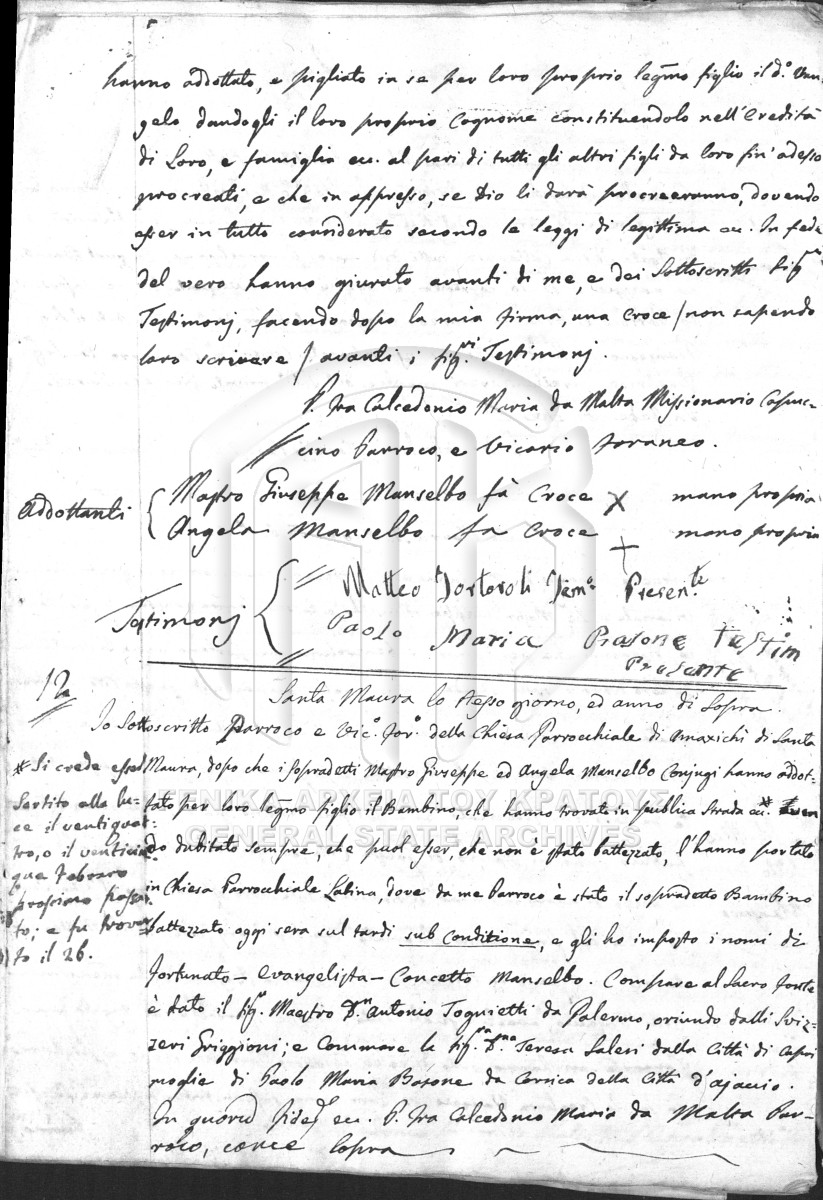 hanno addottato, e pigliato in se per loro proprio legmo figlio il d.º Van-
gelo dandogli il loro proprio Cognome constituendolo nell'Eredità
di Loro, e famiglia ec. al pari di tutti gli altri figli da loro fin'adesso
procreati, e che in appresso, se Dio li darà procreeranno, dovendo
esser in tutto considerato secondo le leggi di legittima ec. In fede
del vero hanno giurato avanti di me, e dei Sottoscritti Sigri
Testimonj, facendo dopo la mia firma, una Croce / non sapendo
loro scrivere / avanti i Sigri Testimonj.
P. Fra Calcedonio Maria da Malta Missionario Capuc-
cino Parroco, e Vicario Foraneo.
Addottanti
Mastro Giuseppe Manselbo fà Croce X mano propria
Angela Manselbo fa Croce + mano propria
Testimonj
Matteo Tem.º Presente
Paolo Maria Testim
Presante
12
Santa Maura lo stesso giorno, ed anno di Sopra.
Io Sottoscritto Parroco e Vic.º For.º della Chiesa Parrocchiale di Amaxichi di Santa
Maura, dopo che i sopradetti Mastro Giuseppe ed Angela Manselbo Conjugi hanno addot-
tato per loro legmo figlio il Bambino, che hanno trovato in publica Strada ec.*
do dubitato sempre, che puol esser, che non è stato battezzato, l'hanno portato
in Chiesa Parrocchiale Latina, dove da me Parroco è stato il sopradetto Bambino
battezzato oggi sera sul tardi sub Conditione, e gli ho imposto i nomi di
Fortunato - Evangelista - Concetto Manselbo. Compare al Sacro Fonte
è stato il Sigr Maestro Dn Antonio Tognietti da Palermo, oriundo dalli Sviz-
zeri Griggioni; e Commare la Sigra Dna Teresa Saleri dalla Città di Capri
moglie di Paolo Maria Basone da Corsica della Città d'Ajaccio.
In quorum fidem ec. P. Fra Calcedonio Maria da Malta Par-
roco, come Sopra
* Si crede esser
Sortito alla lu-
ce il ventiquat-
tro, o il venticin-
que Febraro
prossimo passa-
to; e fu trova-
to il 26.
ΓΕΝΙΚΑ ΑΡΧΕΙΑ ΤΟΥ ΚΡΑΤΟΥΣ
GENERAL STATE ARCHIVES